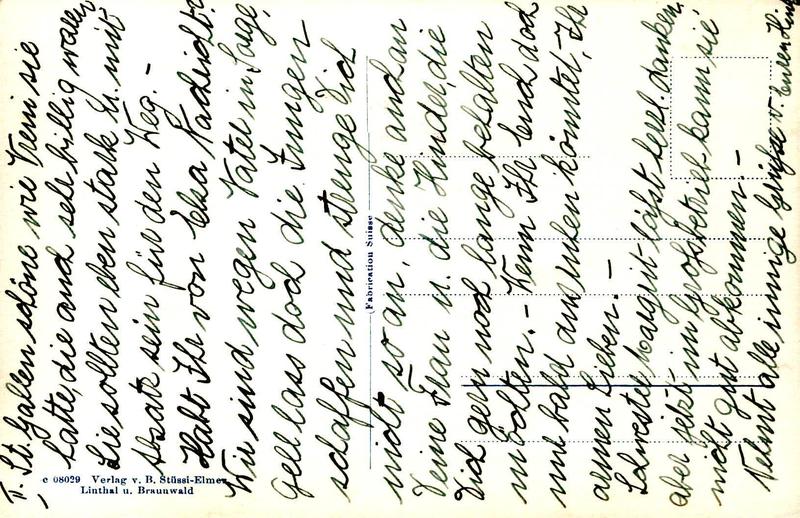 St. Gallen schöne wie Vreni sie
hatte, die auch sehr billig waren
Sie sollten eben stark u. mit
Absatz sein für den Weg. -
Habt Ihr von Elsa Nachricht?
Wir sind wegen Vater in Sorge,
gell lass doch die Jungen
schaffen und strenge Dich
nicht so an, denke auch an
Deine Frau u. die Kinder, die
Dich gern noch lange behalten
möchten. - Wenn Ihr Euch doch
nur bald ausruhen könntet, Ihr
armen Lieben. -
Schwester Margrit lässt herzl. danken,
aber jetzt im Grossbetrieb kann sie
nicht gut abkommen. -
Nehmt alle innige Grüsse v. Euren
(Fabrication Suisse
c 08029 Verlag v. B. Stüssi-Elmer,
Linthal u. Braunwald